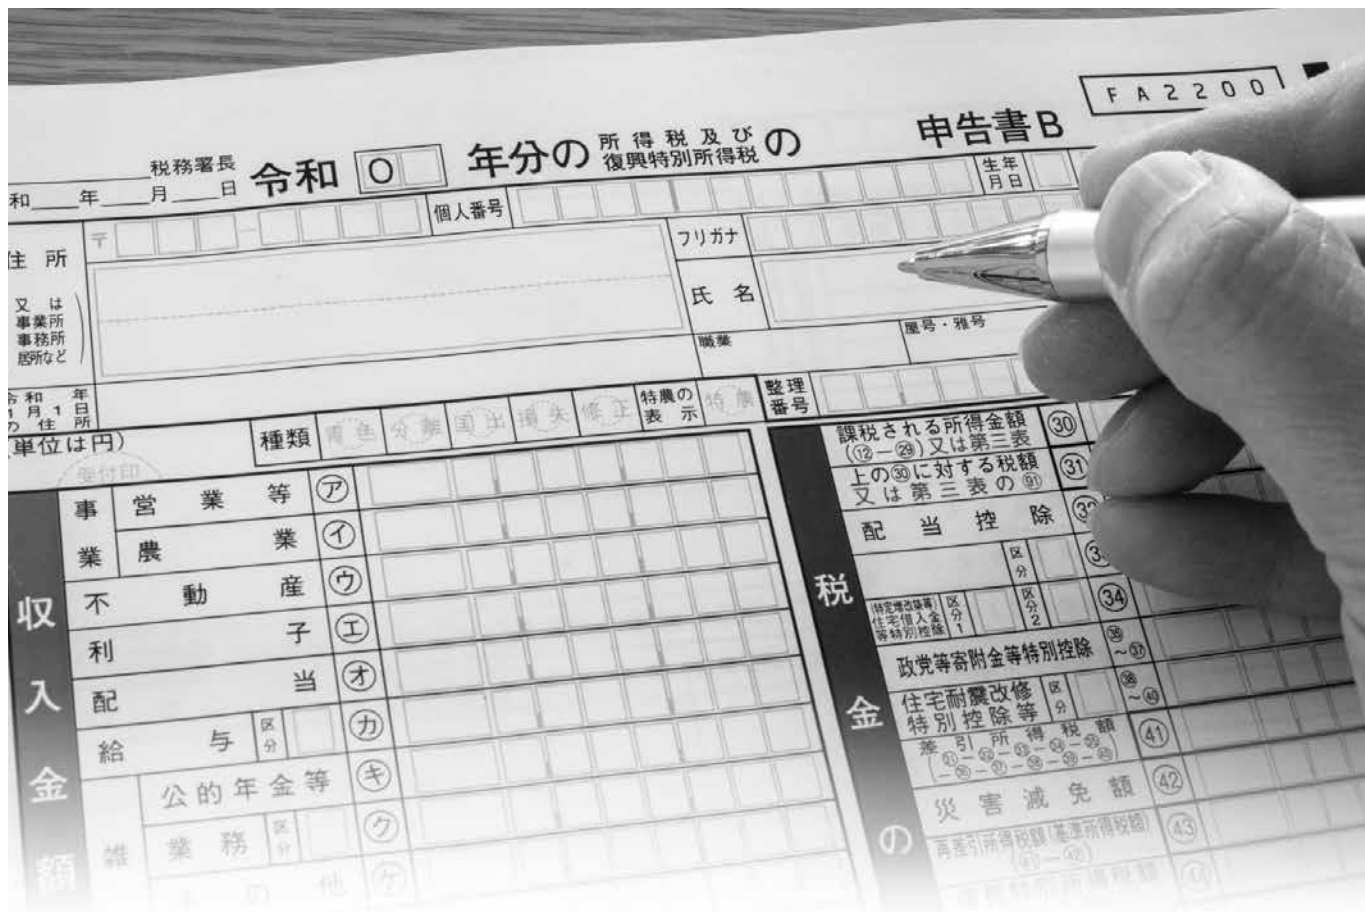 FA2200
税務署長
令和 0 年分の 所得税及び の 申告書B
復興特別所得税
和 年 月 日
個人番号
生年
月日
〒
住所
フリガナ
又は
事業所
事務所
居所など
氏名
職業
屋号・雅号
令和 年
1月1日
の住所
種類
青色 分離 国出 損失 修正
特農の
表示
特農
整理
番号
単位は円)
受付印
収入金額
事業
営業等 ㋐
農業 ㋑
不動産 ㋒
利子 ㋓
配当 ㋔
給与 区分 ㋕
雑
公的年金等 ㋖
業務 区分 ㋗
その他 ㋘
税金の
課税される所得金額
(⑫-㉙)又は第三表 ㉚
上の㉚に対する税額
又は第三表の�91 ㉛
配当控除 ㉜
区分
(特定増改築等)
住宅借入金
等特別控除
区分1
区分2
㉞
政党等寄附金等特別控除 ㉟~㊲
住宅耐震改修
特別控除等
区分
㊳~㊵
差引所得税額 ㊶
災害減免額 ㊷
再差引所得税額(基準所得税額)
(㊶-㊷) ㊸
復興特別所得税額 ㊹